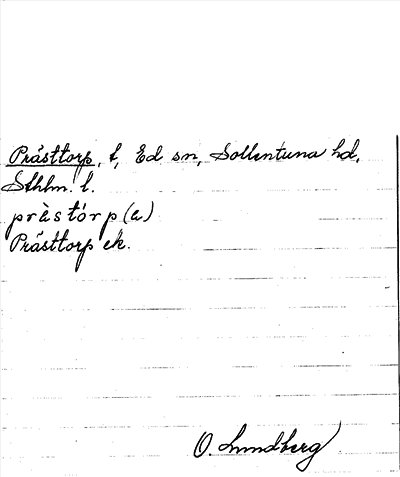 Prästtorp, t, Ed sn, Sollentuna hd,
Sthlm. l.
prèstórp(a)
Prästtorp ek.
O. Lundberg